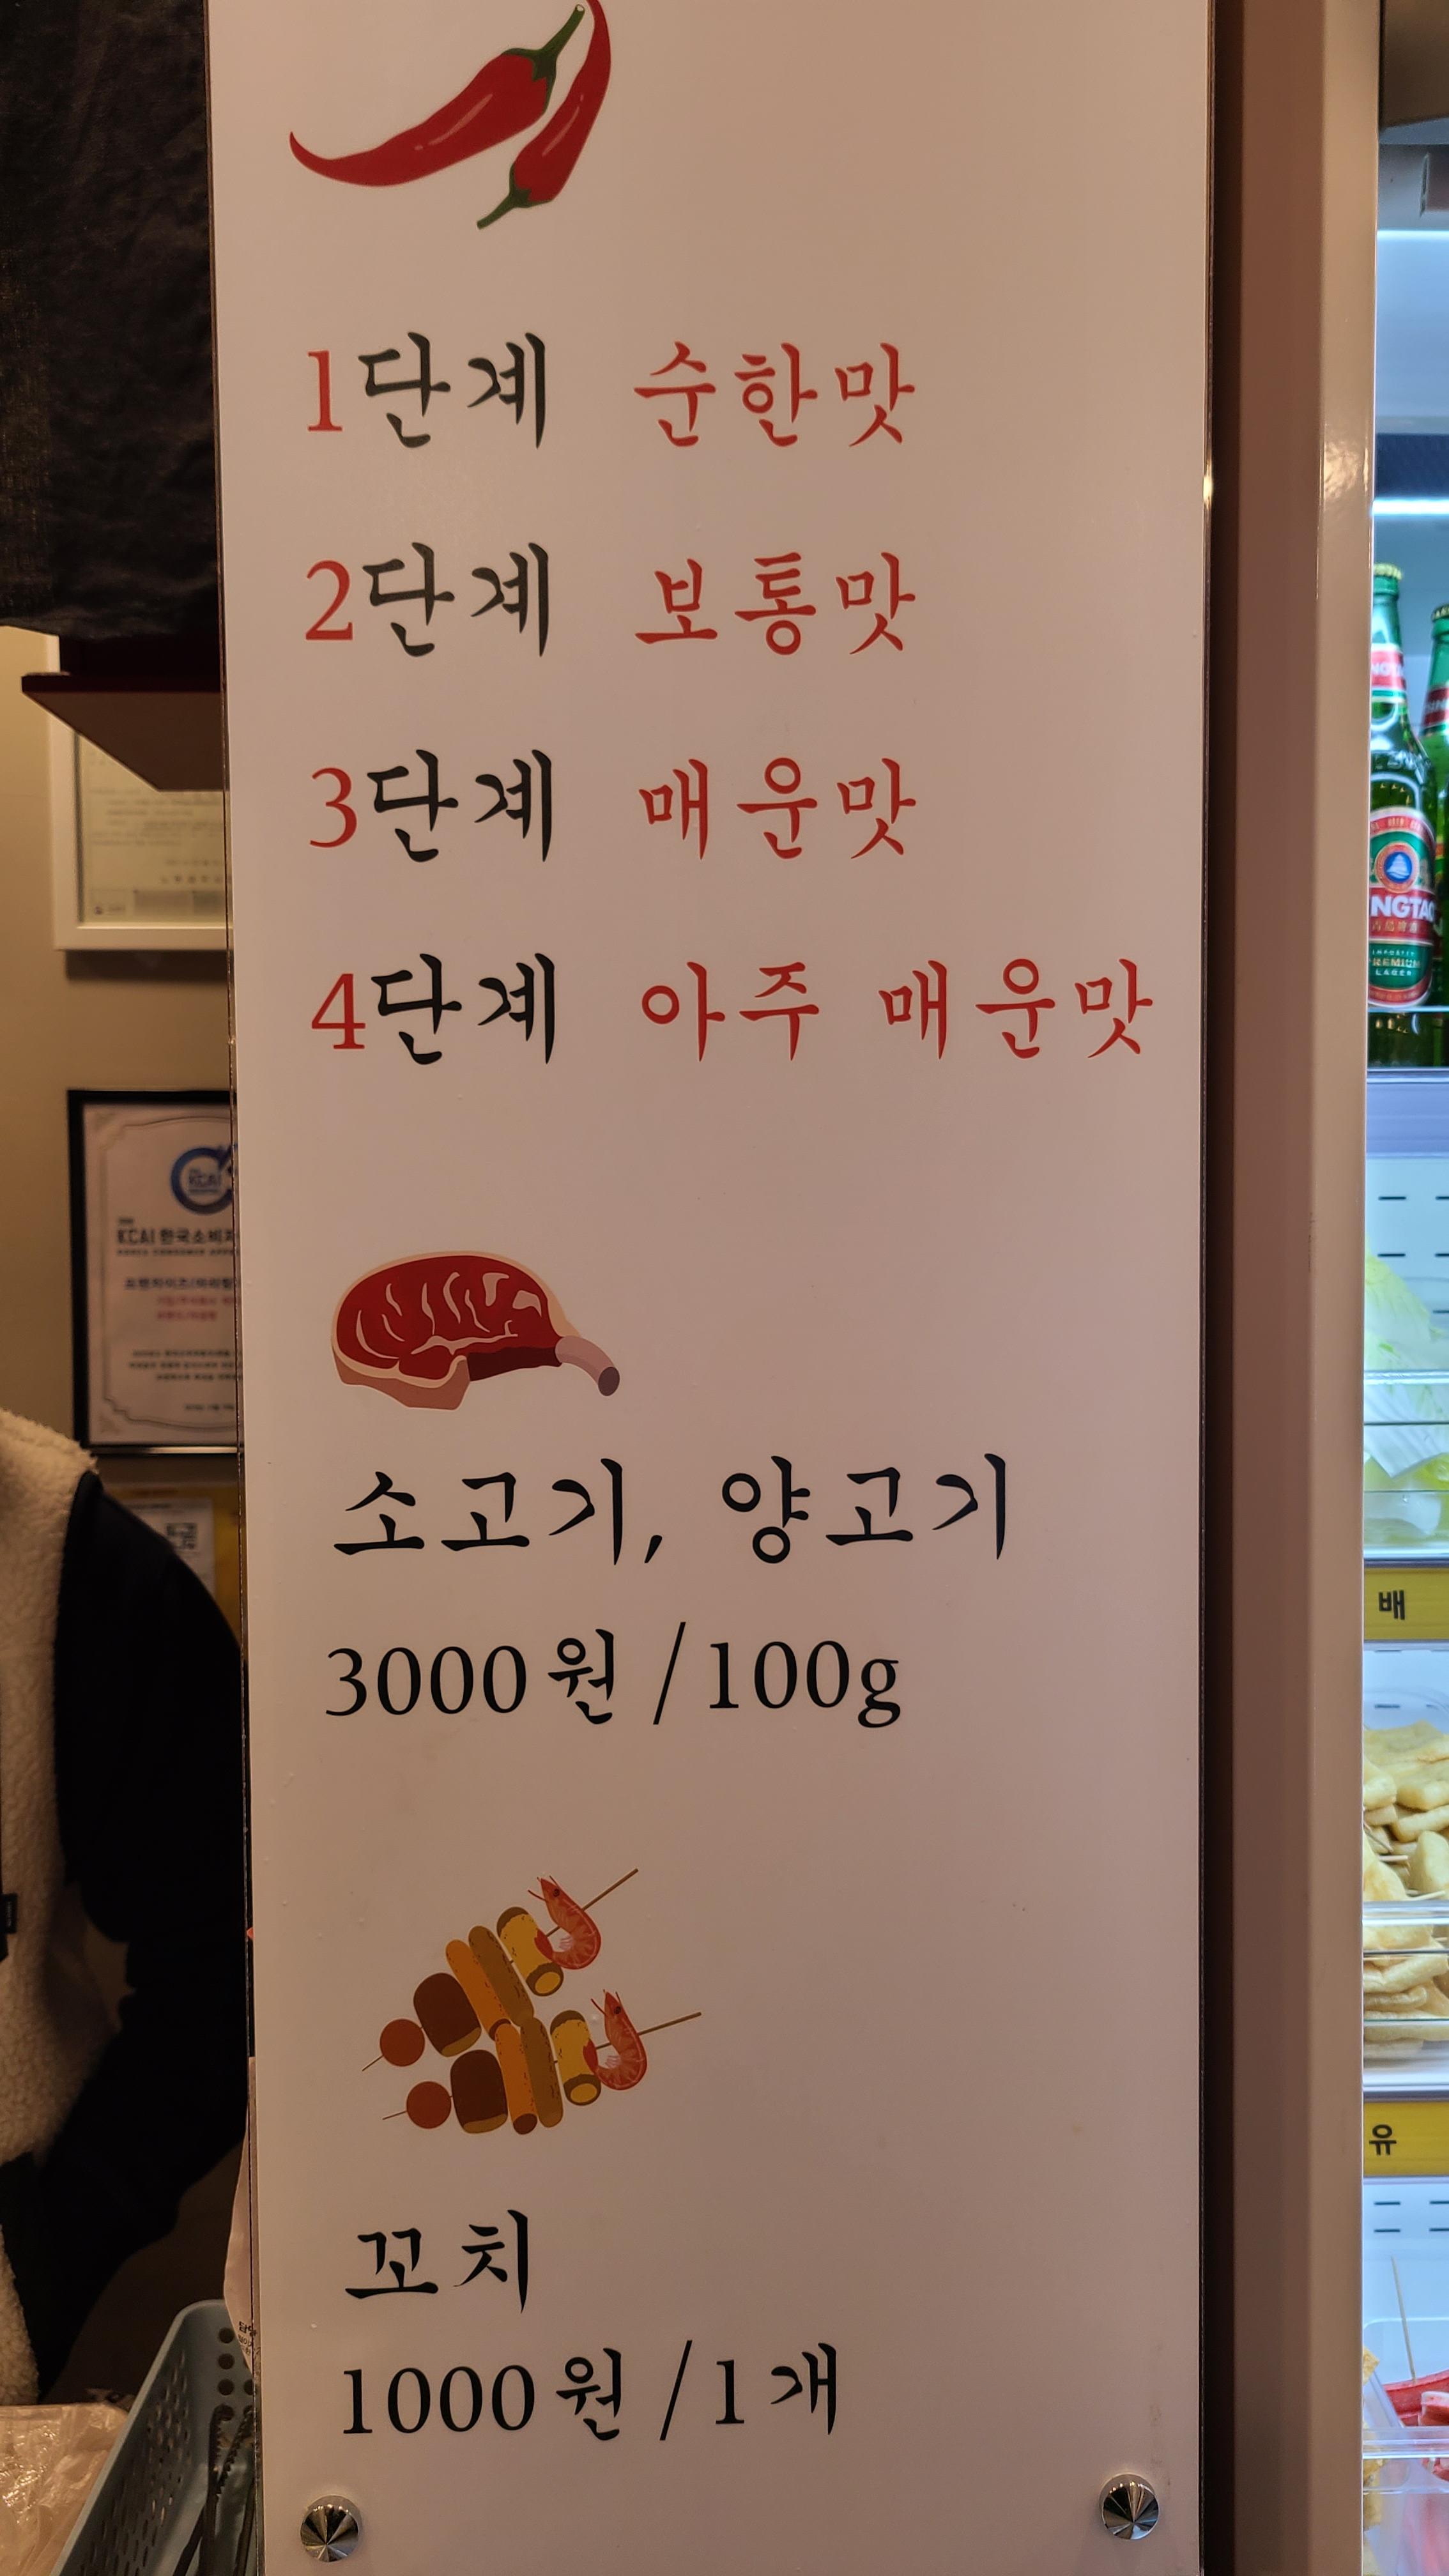 1단계 순한맛
2단계 보통맛
3단계 매운맛
4단계 아주 매운맛
소고기, 양고기
3000원 /100g
꼬치
1000원 /1개
KCAI 한국소비자
NGTAO
PREMIUM
LAGER
배
유